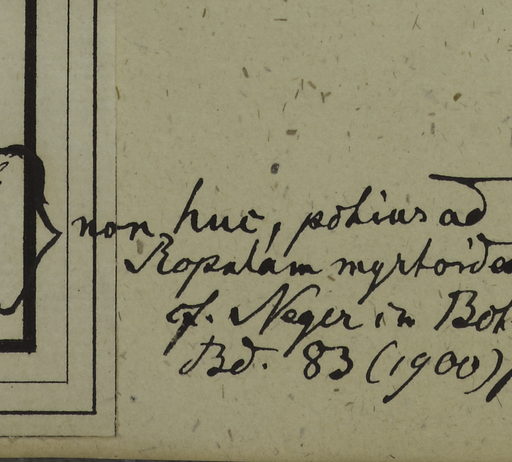 non huc, potius ad
Ropalam myrtoidea
cf. Neger in Bot
Bd. 83 (1900)